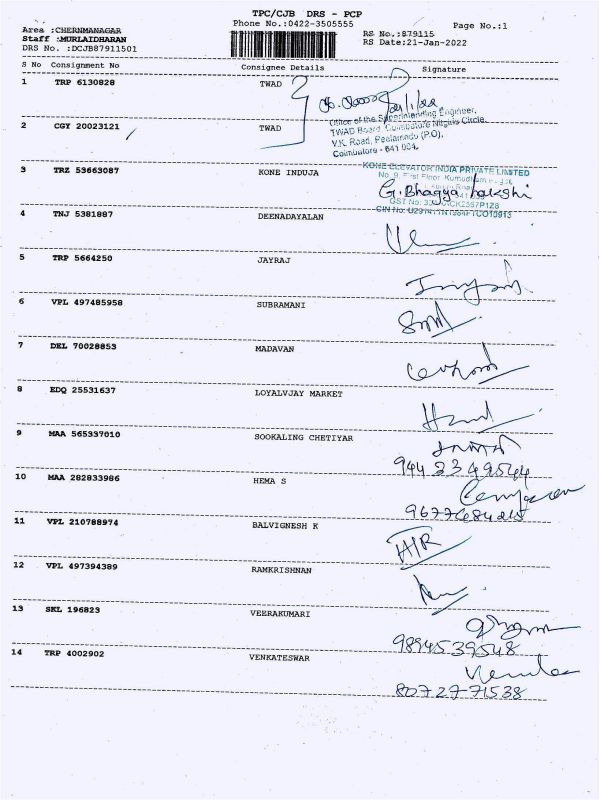 TPC/CJB DRS - PCP
Phone No.:0422-3505555
Page No.:1
Area :CHERNMANAGAR
Staff :MURLAIDHARAN
DRS No. :DCJB87911501
RS No.:879115
RS Date:21-Jan-2022
S No Consignment No Consignee Details Signature
1 TRP 6130828 TWAD
2 CGY 20023121 TWAD
Office of the Superintending Engineer,
TWAD Board, Coimbatore Nilgiris Circle,
V.K. Road, Peelamedu (P.O),
Coimbatore - 641 004.
3 TRZ 53663087 KONE INDUJA
KONE ELEVATOR INDIA PRIVATE LIMITED
No. 9, First Floor, Kumudham
G. Bhagya lakshi
4 TNJ 5381887 DEENADAYALAN
5 TRP 5664250 JAYRAJ
6 VPL 497485958 SUBRAMANI
7 DEL 70028853 MADAVAN
8 EDQ 25531637 LOYALVJAY MARKET
9 MAA 565337010 SOOKALING CHETIYAR
944 23 49564
10 MAA 282833986 HEMA S
11 VPL 210788974 BALVIGNESH K
12 VPL 497394389 RAMKRISHNAN
13 SKL 196823 VEERAKUMARI
9894539548
14 TRP 4002902 VENKATESWAR
80727 71538